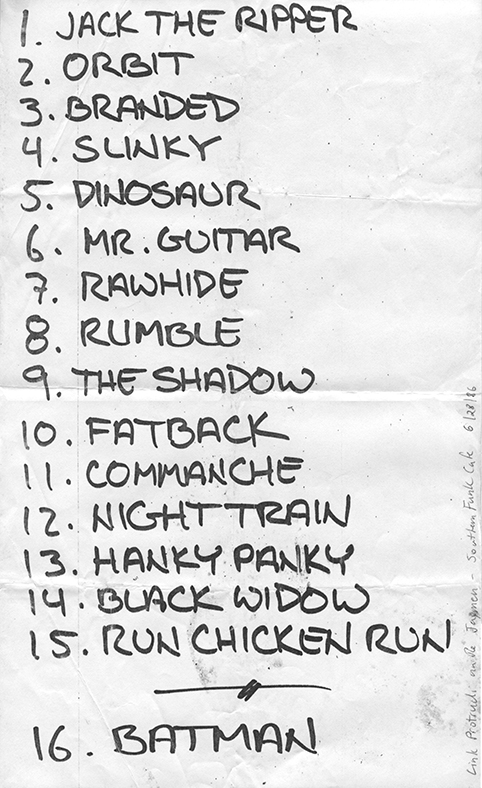 1. JACK THE RIPPER
2. ORBIT
3. BRANDED
4. SLINKY
5. DINOSAUR
6. MR. GUITAR
7. RAWHIDE
8. RUMBLE
9. THE SHADOW
10. FATBACK
11. COMMANCHE
12. NIGHT TRAIN
13. HANKY PANKY
14. BLACK WIDOW
15. RUN CHICKEN RUN
16. BATMAN
Link Protrudi and the Jaymen - Southern Funk Cafe 6/28/86